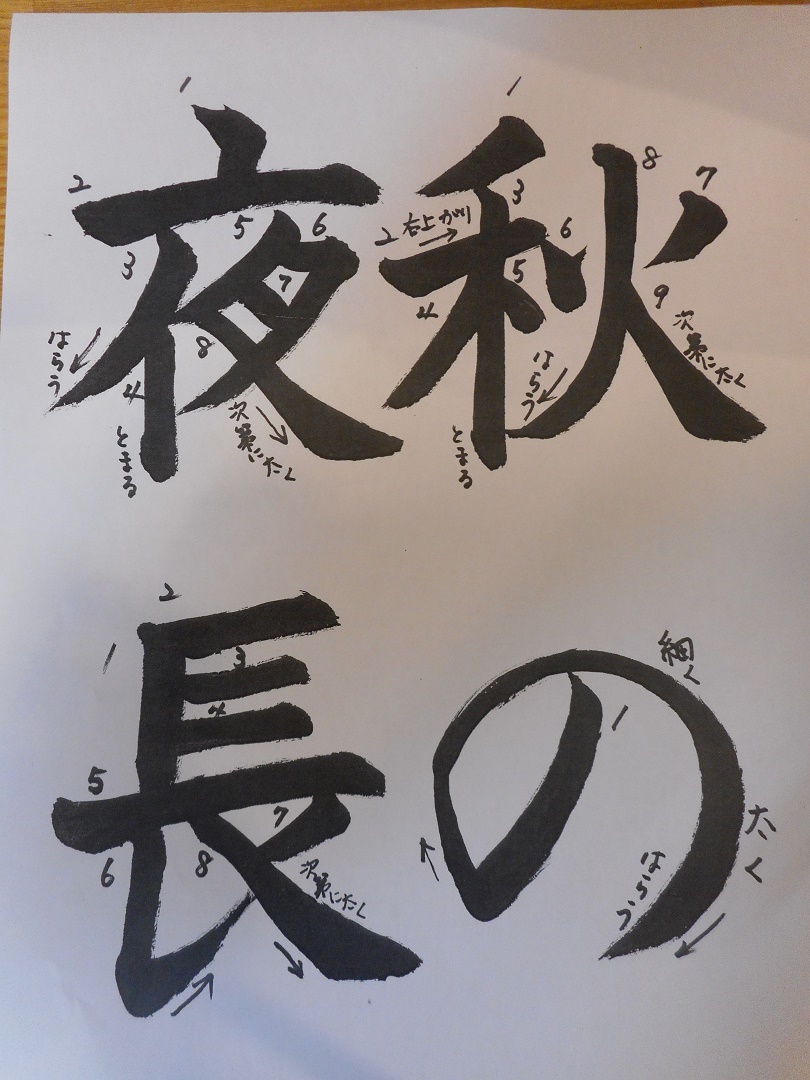 秋の
夜長
1
2
右上がり
3
4
5
6
7
8
9
はらう
とまる
次第にたく
1
細く
太く
はらう
1
2
3
4
5
6
7
8
はらう
とまる
次第にたく
1
2
3
4
5
6
7
8
次第にたく